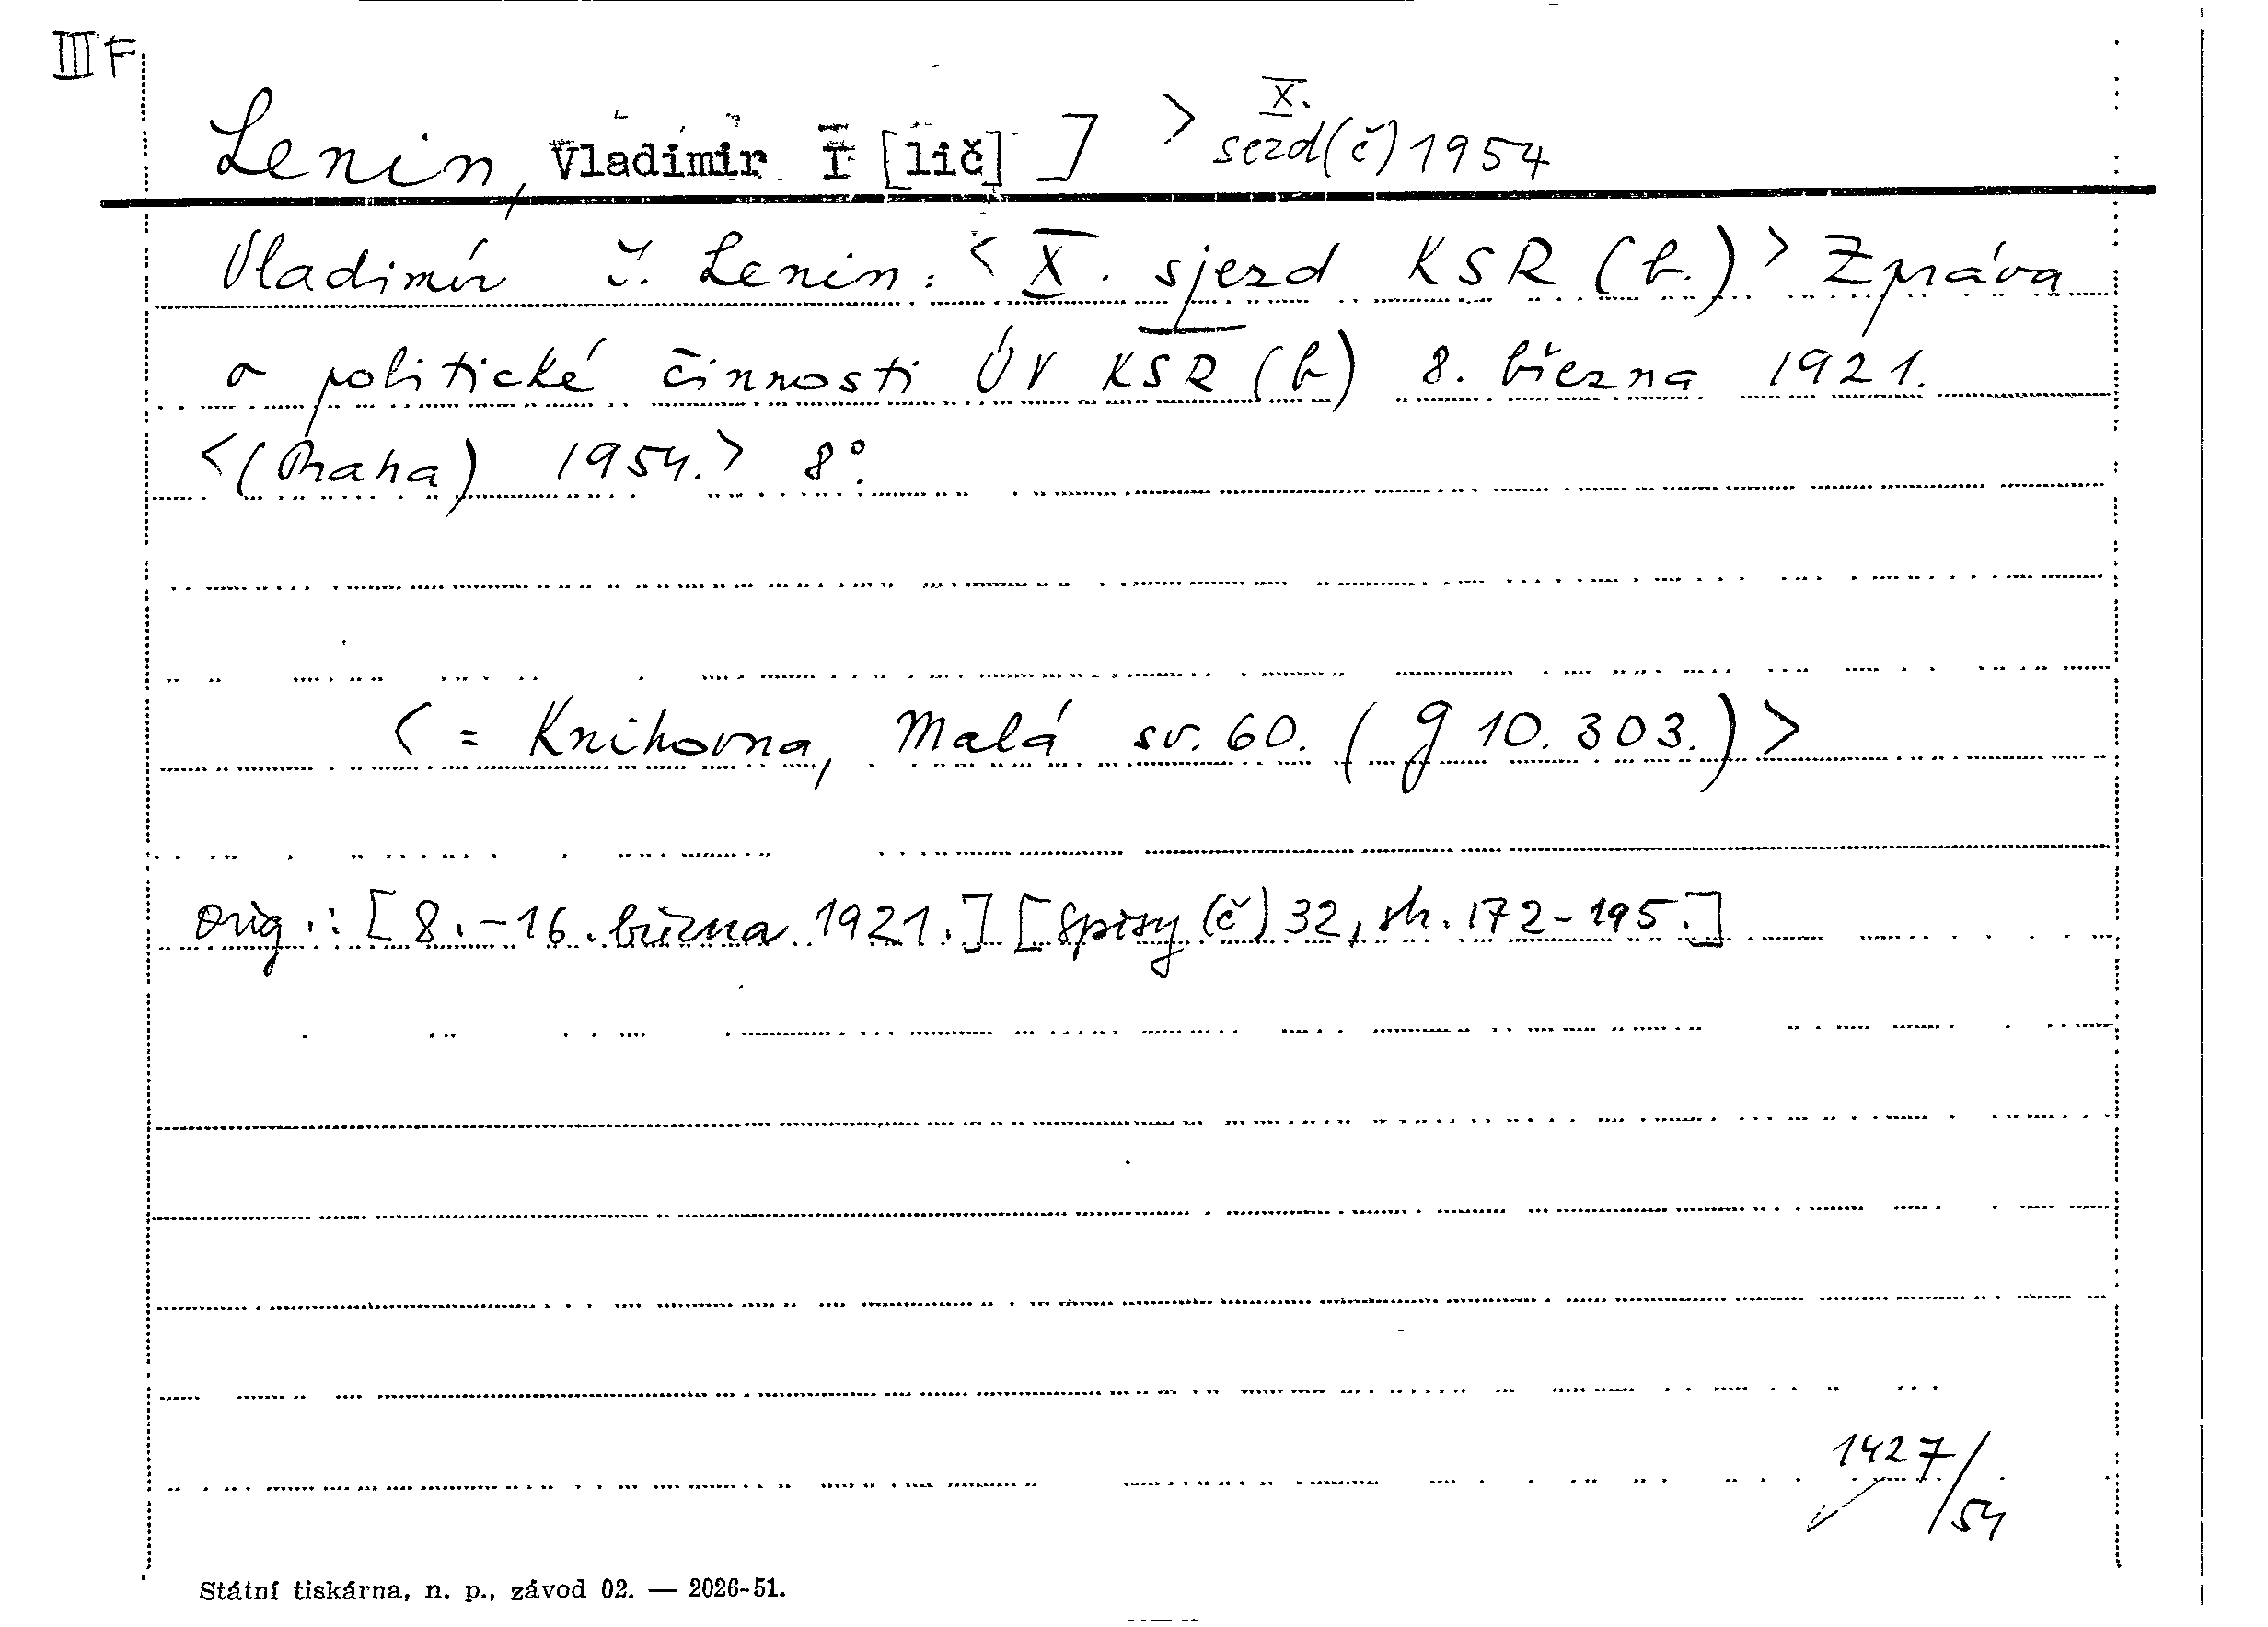 III F
Lenin, Vladimir I [lič] ] > X. sezd(č) 1954
Vladimír Lenin: < X. sjezd KSR (b.) > Zpráva
o politické činnosti ÚV KSR (b) 8. března 1921.
<(Praha) 1954.> 8°.
< = Knihovna, Malá sv. 60. (g 10.303.) >
orig.: [8.-16. března 1921.] [Spisy (č) 32, str. 172-195.]
1427/54
Státní tiskárna, n. p., závod 02. — 2026-51.